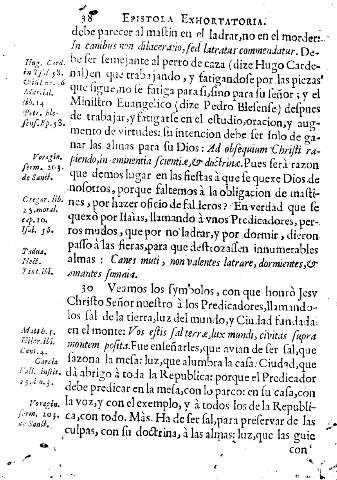 38 EPISTOLA EXHORTATORIA.
debe parecer al mastin en el ladrar, no en el morder:
In canibus non dilaceratio, sed latratus commendatur. De-
be ser semejante al perro de caza (dize Hugo Carde-
nal) en que trabajando, y fatigandose por las piezas
que sigue, no se fatiga para si, sino para su señor; y el
Ministro Euangelico (dize Pedro Blesense) despues
de trabajar, y fatigarse en el estudio, oracion, y au-
mento de virtudes: su intencion debe ser solo de ga-
nar las almas para su Dios: Ad obsequium Christi ra-
piendo, in eminentia scientiæ, & doctrinæ. Pues serà razon
que demos lugar en las fiestas à que se quexe Dios de
nosotros, porque faltemos à la obligacion de masti-
nes, por hazer oficio de falderos? En verdad que se
quexò por Isaias, llamando à vnos Predicadores, per-
ros mudos, que por no ladrar, y por dormir, dieron
passo à las fieras, para que destrozassen innumerables
almas: Canes muti, non valentes latrare, dormientes, &
amantes somnia.
30 Veamos los symbolos, con que honrò Jesv
Christo Señor nuestro à los Predicadores, llamando-
los sal de la tierra, luz del mundo, y Ciudad fundada
en el monte: Vos estis sal terræ, lux mundi, civitas supra
montem posita. Fue enseñarles, que avian de ser sal, que
sazona la mesa: luz, que alumbra la casa: Ciudad, que
dà abrigo à toda la Republica: porque el Predicador
debe predicar en la mesa, con lo parco: en su casa, con
la voz, y con el exemplo, y à todos los de la Republi-
ca, con todo. Màs. Ha de ser sal, para preservar de las
culpas, con su doctrina, à las almas: luz, que las guie
con
Hug. Card.
in Isai. 58.
Marial.
lib. 14
Petr. Ble-
sens. Ep. 58.
Voragin.
serm. 203.
de Sanct.
Gregor. lib.
25. moral.
cap. 10.
Isai. 56.
Matth. 5.
Cent. 4.
Garcia
Voragin.
serm. 203.
de Sanct.